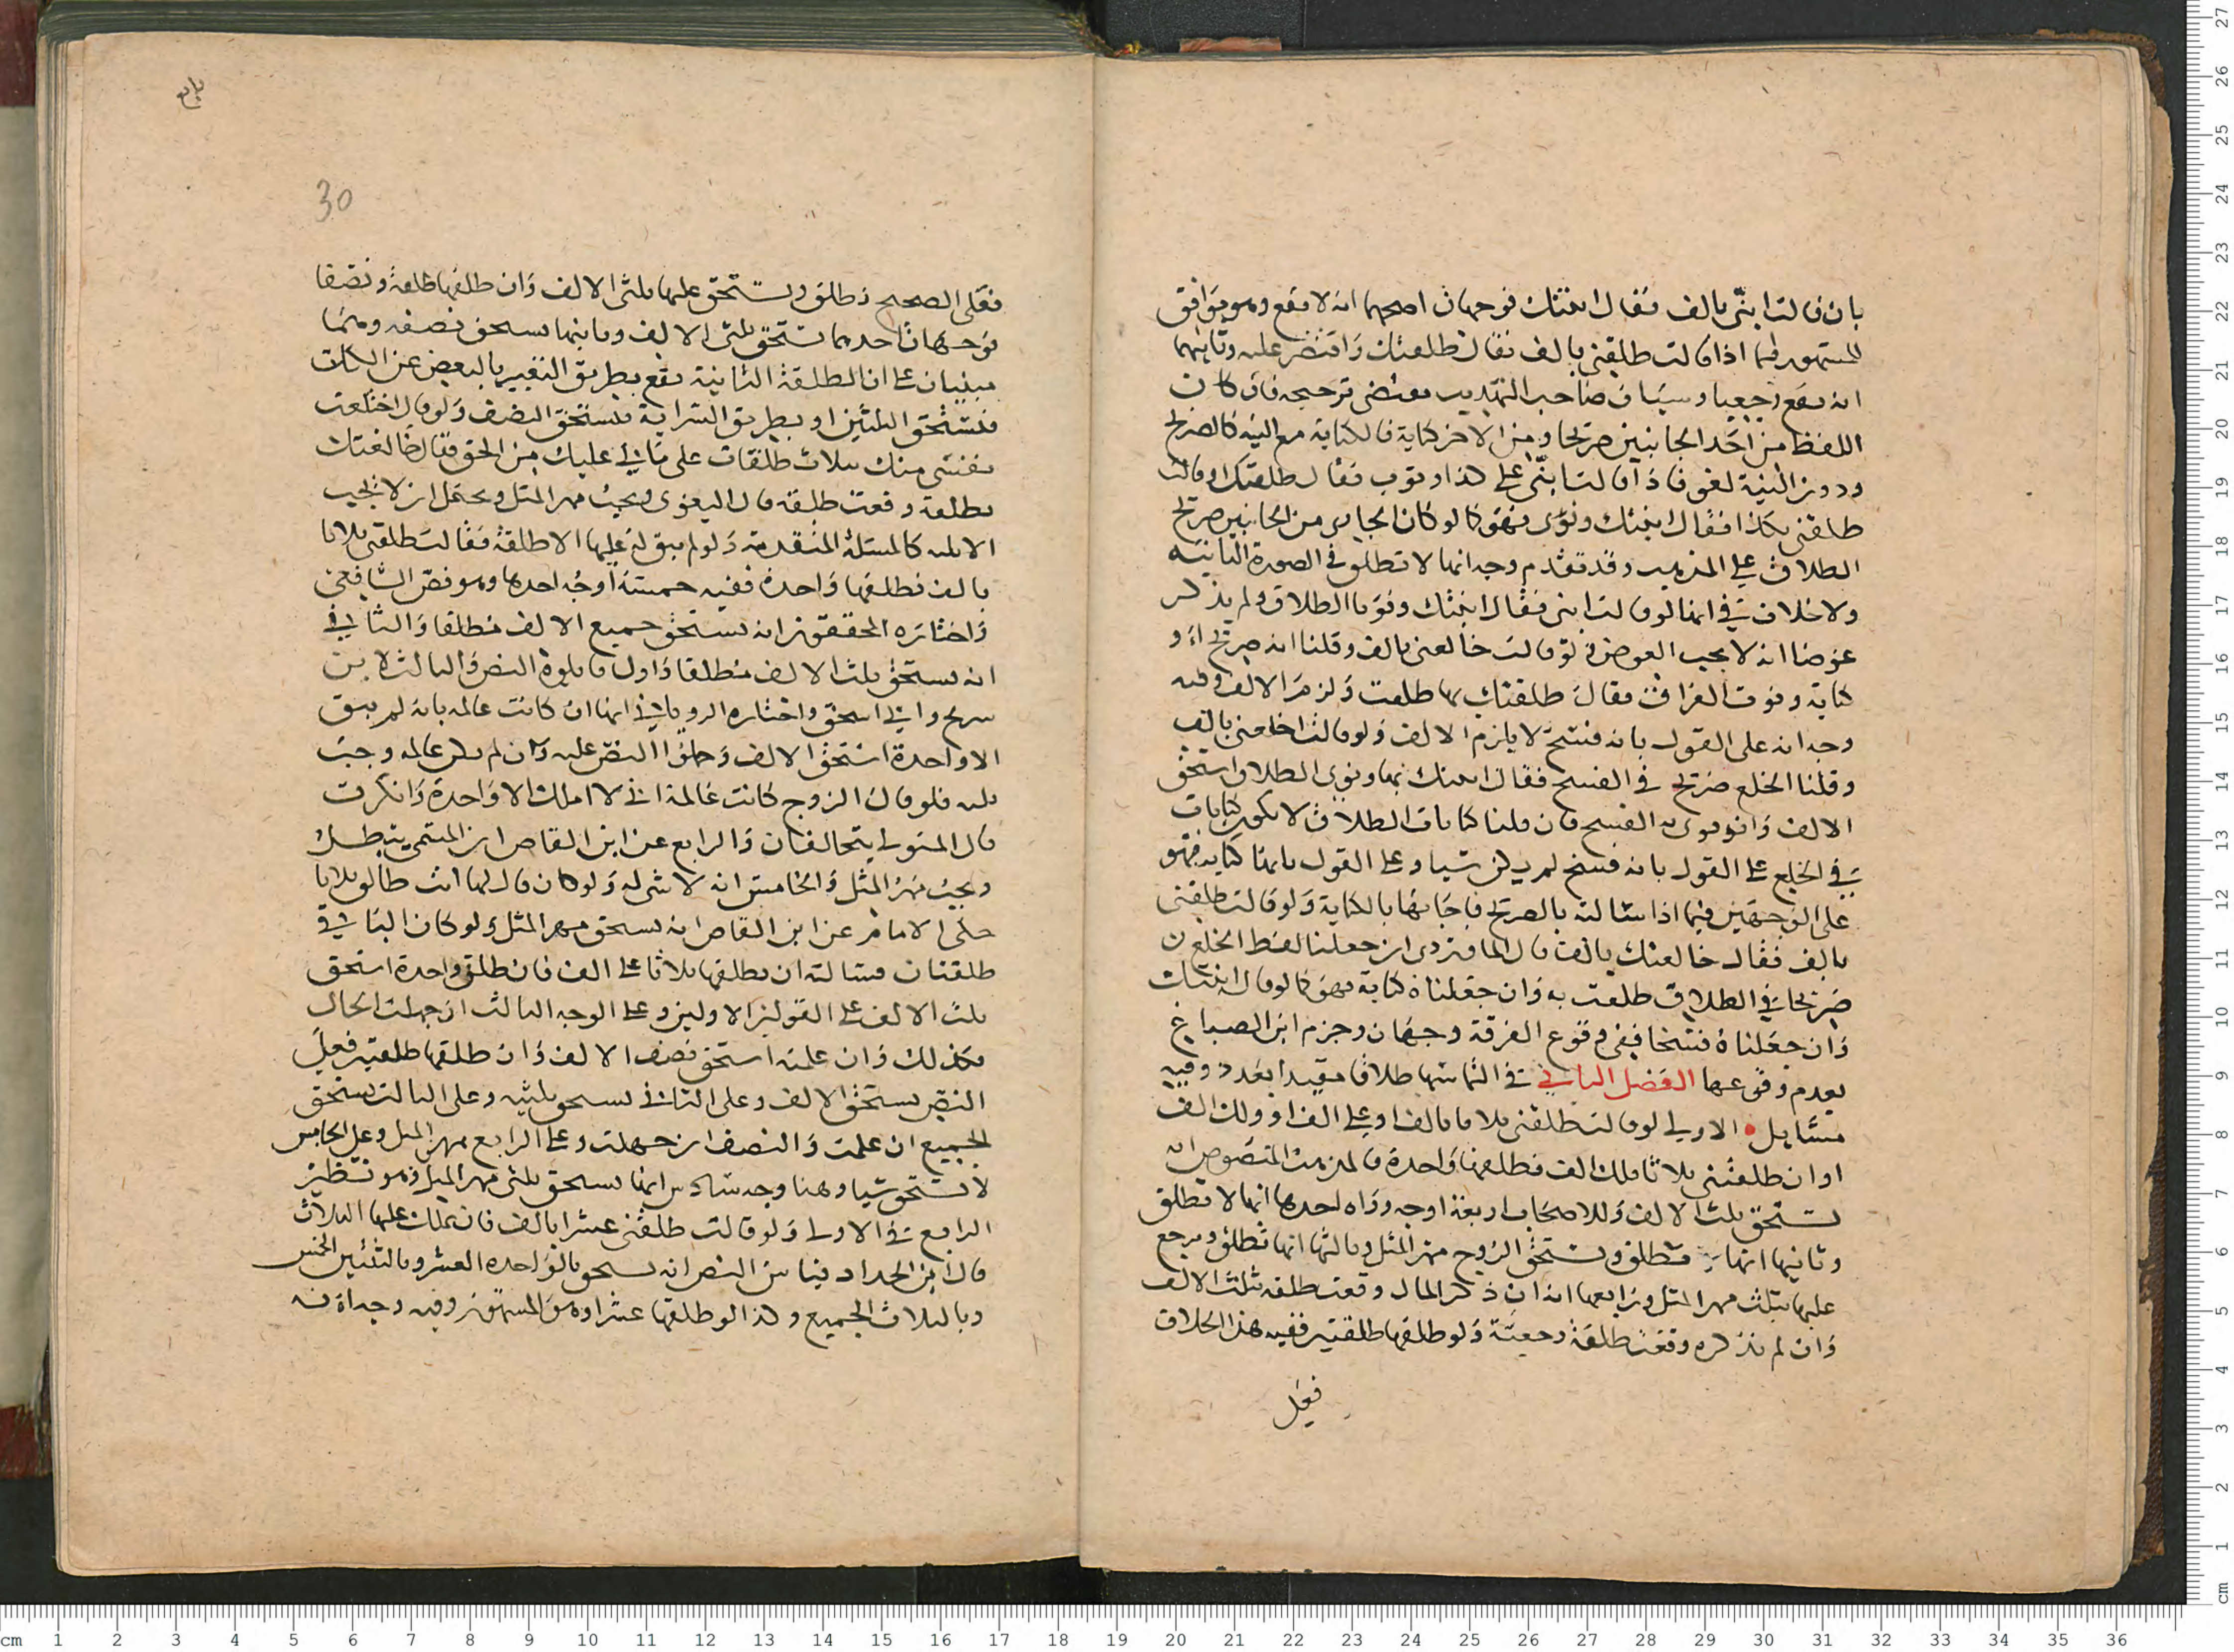 بان قالت ابنّي بالف فقال ابنتك فوجهان اصحهما انه لا يقع وهو يوافق
المشهور فيما اذا قالت طلقني بالف فقال طلقتك واقتصر عليه وثانيهما
انه يقع رجعيا وسياق صاحب التهذيب يقتضي ترجيحه فان كان
اللفظ من احد الجانبين صريحا ومن الاخر كناية فالكناية مع النية كالصريح
ودون النية لغو فاذا قالت ابنّي على كذا ونوت فقال طلقتك او قالت
طلقني بكذا فقال ابنتك ونوى فهو كما لو كان الجاري من الجانبين صريح
الطلاق على المذهب وقد تقدم وجه انها لا تطلق في الصورة الثانية
ولا خلاف في انها لو قالت ابني فقال ابنتك ونويا الطلاق ولم يذكر
عوضا انه لا يجب العوض فلو قالت خالعني بالف وقلنا انه صريح او
كناية ونوت الفراق فقال طلقتك بها طلقت ولزم الالف وفيه
وجه انه على القول بانه فسخ لا يلزم الالف ولو قالت اخلعني بالف
وقلنا الخلع صريح في الفسخ فقال ابنتك بها ونوى الطلاق استحق
الالف وان نوى به الفسخ فان قلنا كنايات الطلاق لا تكون كنايات
في الخلع على القول بانه فسخ لم يكن شيا وعلى القول بانها كناية فهو
على الوجهين فيما اذا سالته بالصريح فاجابها بالكناية ولو قالت طلقني
بالف فقال خالعتك بالف قال الماوردي ان جعلنا لفظ الخلع
صريحا في الطلاق طلقت به وان جعلناه كناية فهو كما لو قال ابنتك
وان جعلناه فسخا ففي وقوع الفرقة وجهان وجزم ابن الصباغ
بعدم وقوعها الفصل الثاني في التماسها طلاقا مقيدا بعدد وفيه
مسايل الاولى لو قالت طلقني ثلاثا بالف او على الف او ولك الف
او ان طلقتني ثلاثا فلك الف فطلقها واحدة فالمذهب المنصوص انه
يستحق ثلث الالف وللاصحاب اربعة اوجه وراه احدها انها لا تطلق
وثانيها انها تطلق ويستحق الزوج مهر المثل وثالثها انها تطلق ويرجع
عليها بثلث مهر المثل ورابعها انه ان ذكر المال وقعت طلقة بثلث الالف
وان لم يذكره وقعت طلقة رجعية ولو طلقها طلقتين ففيه هذا الخلاف
فعلى
رابع
30
فعلى الصحيح تطلق ويستحق عليها ثلثي الالف وان طلقها طلقة ونصفا
فوجهان احدهما يستحق ثلثي الالف وثانيهما يستحق نصفه وهما
مبنيان على ان الطلقة الثانية تقع بطريق التعبير بالبعض عن الكل
فيستحق الثلثين او بطريق السراية فيستحق النصف ولو قال اختلعت
نفسي منك بثلاث طلقات على مالي عليك من الحق فقال خالعتك
بطلقة وقعت طلقة قال البغوي ويجب مهر المثل ويحتمل ان لا يجب
الا ثلثه كالمسئلة المتقدمة ولو لم يبق له عليها الا طلقة فقالت طلقني ثلاثا
بالف فطلقها واحدة ففيه خمسة اوجه احدها وهو نص الشافعي
واختاره المحققون انه يستحق جميع الالف مطلقا والثاني
انه يستحق ثلث الالف مطلقا واول قايلوه النص والثالث لابن
سريج وابي اسحق واختاره الروياني انها ان كانت عالمة بانه لم يبق
الا واحدة استحق الالف وحملوا النص عليه وان لم تكن عالمة وجب
ثلثه فلو قال الزوج كانت عالمة اني لا املك الا واحدة وانكرت
قال المتولي يتحالفان والرابع عن ابن القاص ان المسمى يبطل
ويجب مهر المثل والخامس انه لا شي له ولو كان قال لها انت طالق ثلاثا
حكى الامام عن ابن القاص انه يستحق مهر المثل ولو كان الباقي
طلقتان فسالته ان يطلقها ثلاثا على الف فان طلق واحدة استحق
ثلث الالف على القولين الاولين وعلى الوجه الثالث ان جهلت الحال
فكذلك وان علمته استحق نصف الالف وان طلقها طلقتين فعلى
النص يستحق الالف وعلى الثاني يستحق ثلثيه وعلى الثالث يستحق
الجميع ان علمت والنصف ان جهلت وعلى الرابع مهر المثل وعلى الخامس
لا يستحق شيا وهنا وجه سادس انها يستحق ثلثي مهر المثل وهو نظير
الرابع في الاولى ولو قالت طلقني عشرا بالف فان يملك عليها الثلاث
قال ابن الحداد قياس النص انه يستحق بالواحدة العشر وبالثنتين الخمس
وبالثلاث الجميع وكذا لو طلقها عشرا وهو المشهور وفيه وجه انه